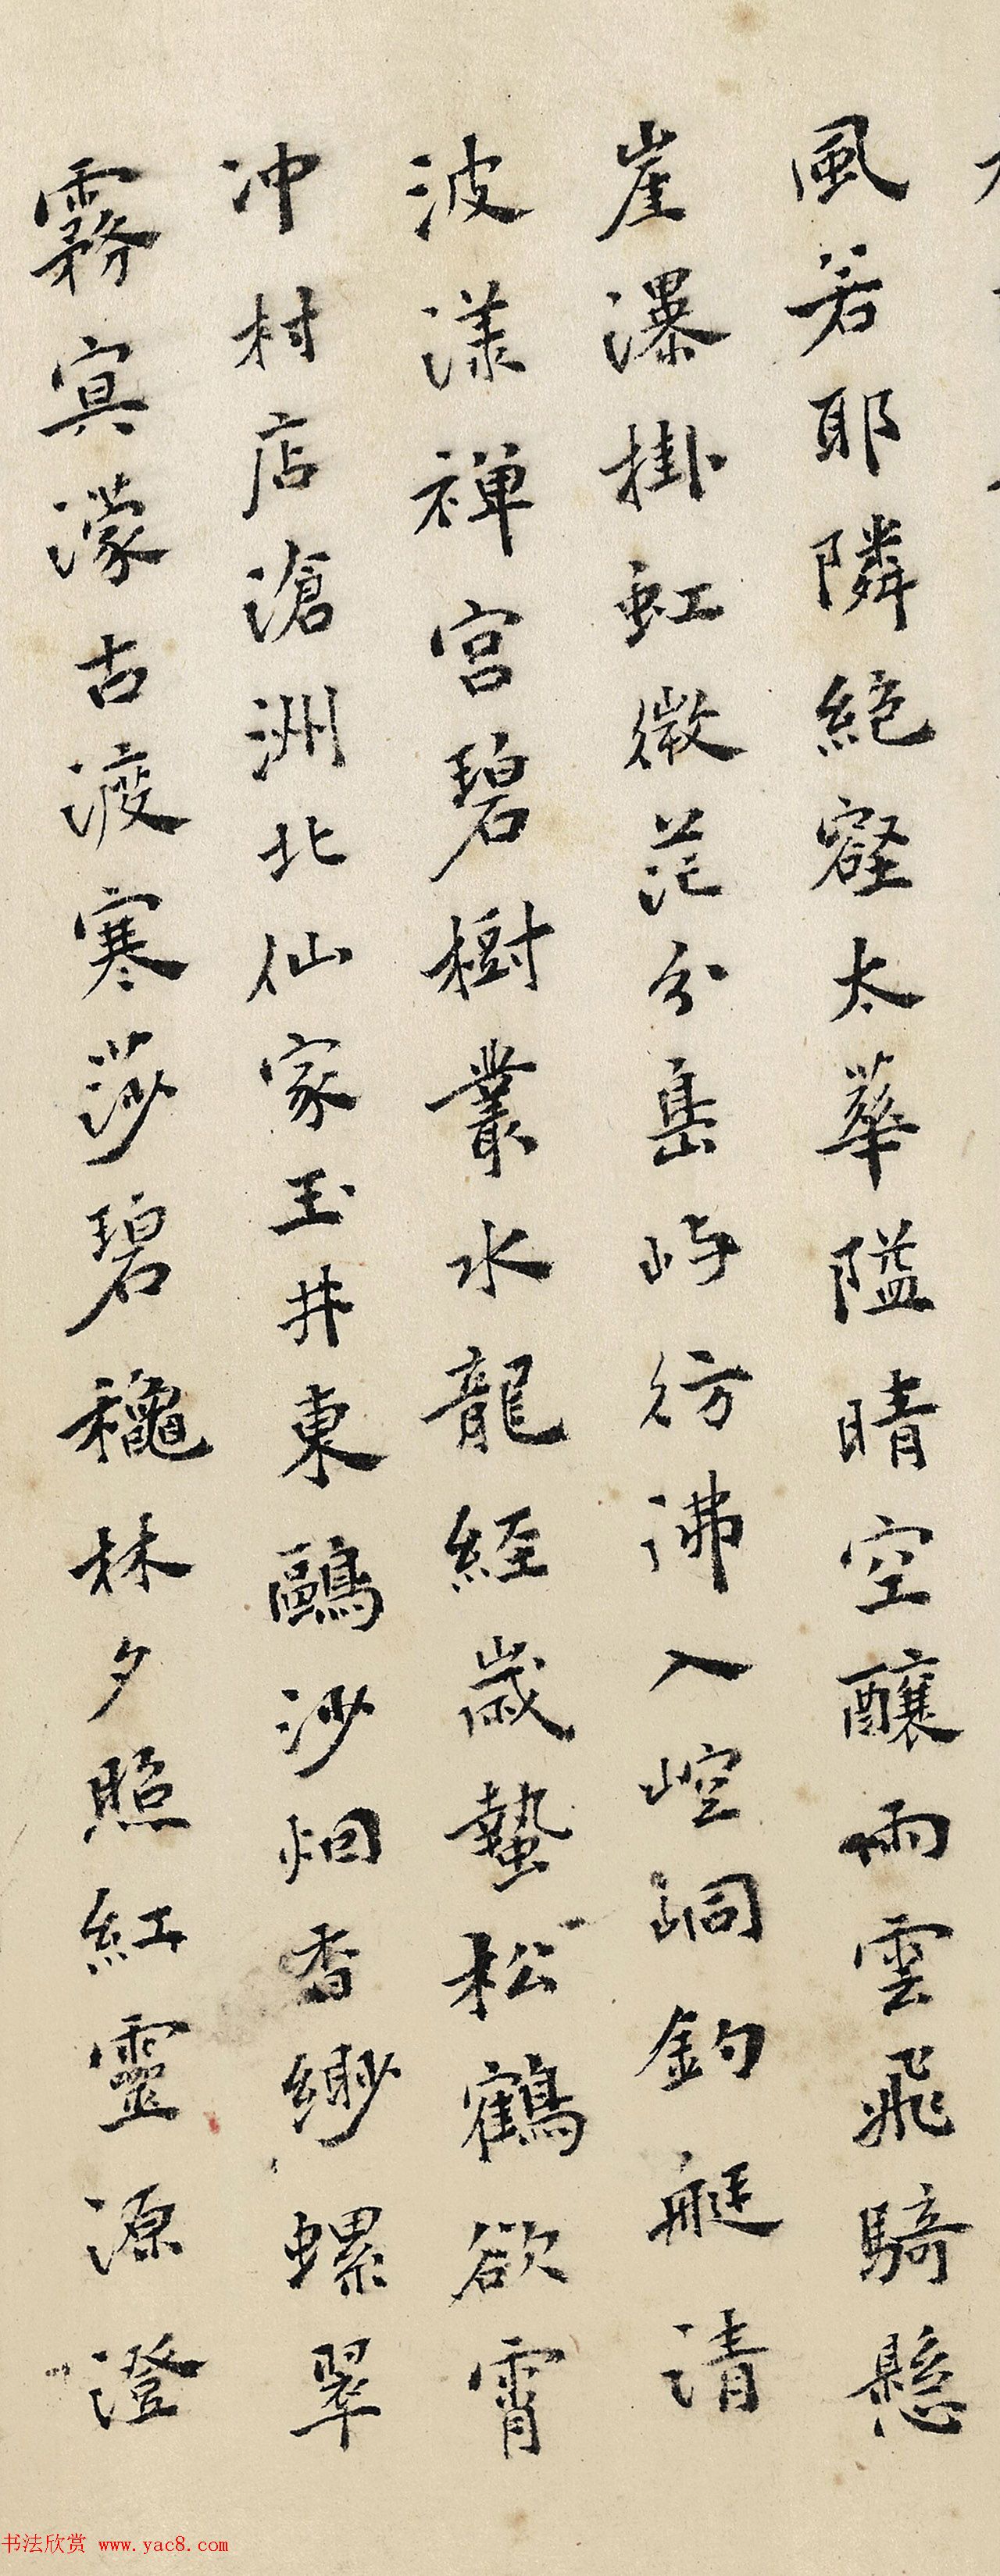 風若耶隣絕壑太華隘晴空釀雨雲飛騎懸
崖瀑掛虹微茫分島嶼彷沸入崆峒釣艇清
波漾禅宮碧樹叢水龍經歲蟄松鶴欲霄
冲村店滄洲北仙家玉井東鷗沙烟香緲螺翠
霧寘濛古渡寒莎碧龝林夕照紅靈源澄
书法欣赏 www.yac8.com